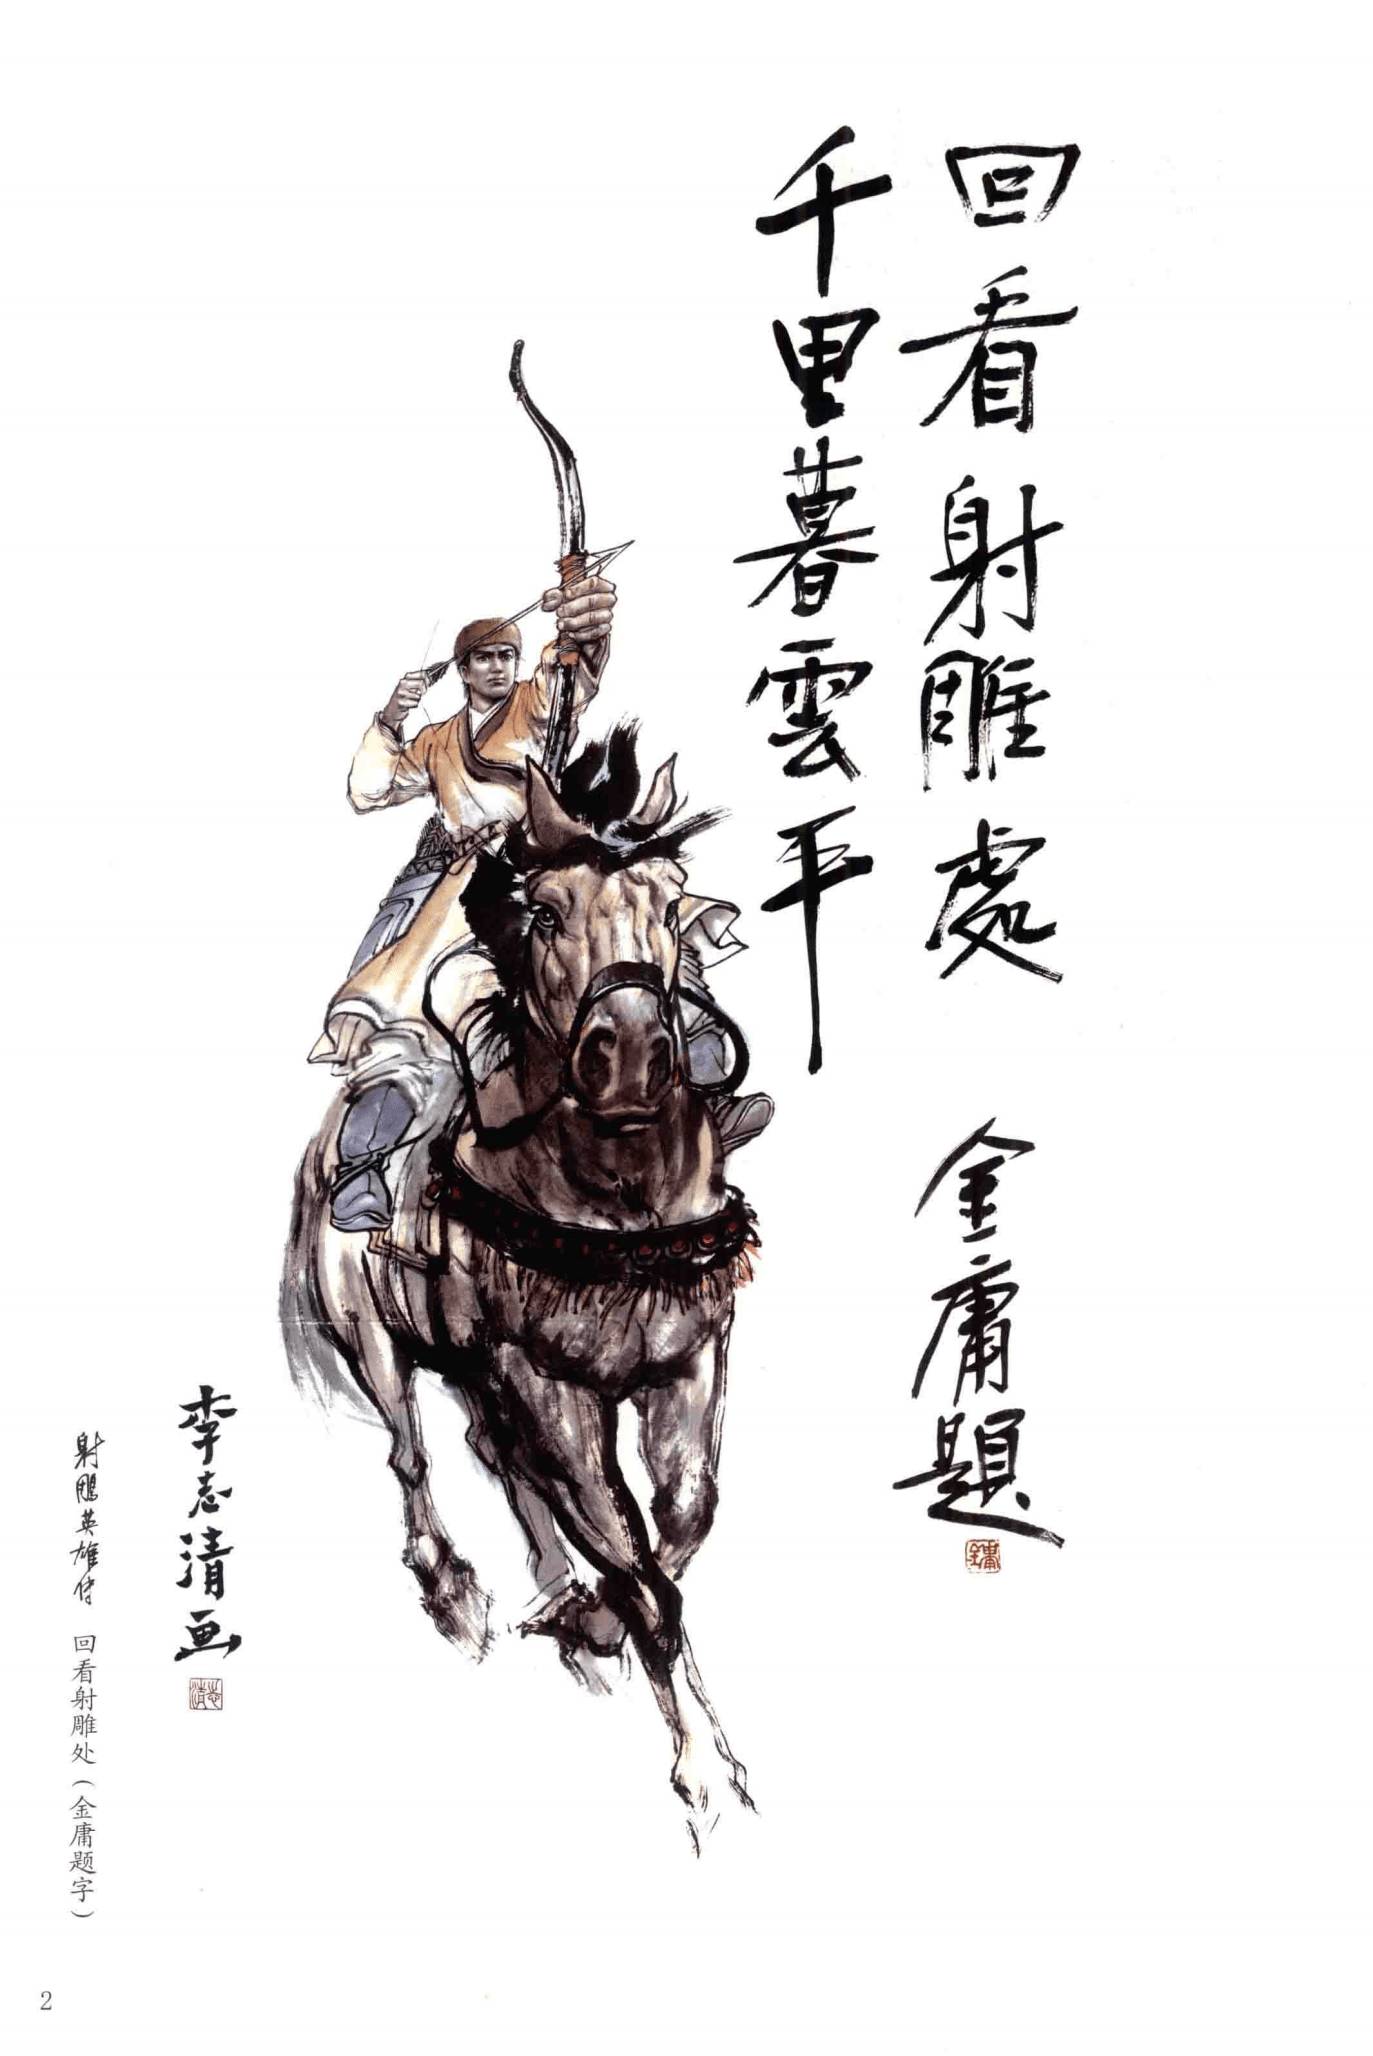 回看射雕處
千里暮雲平
金庸題
鏞
李志清画
志清
射鵰英雄传 回看射雕处（金庸题字）
2